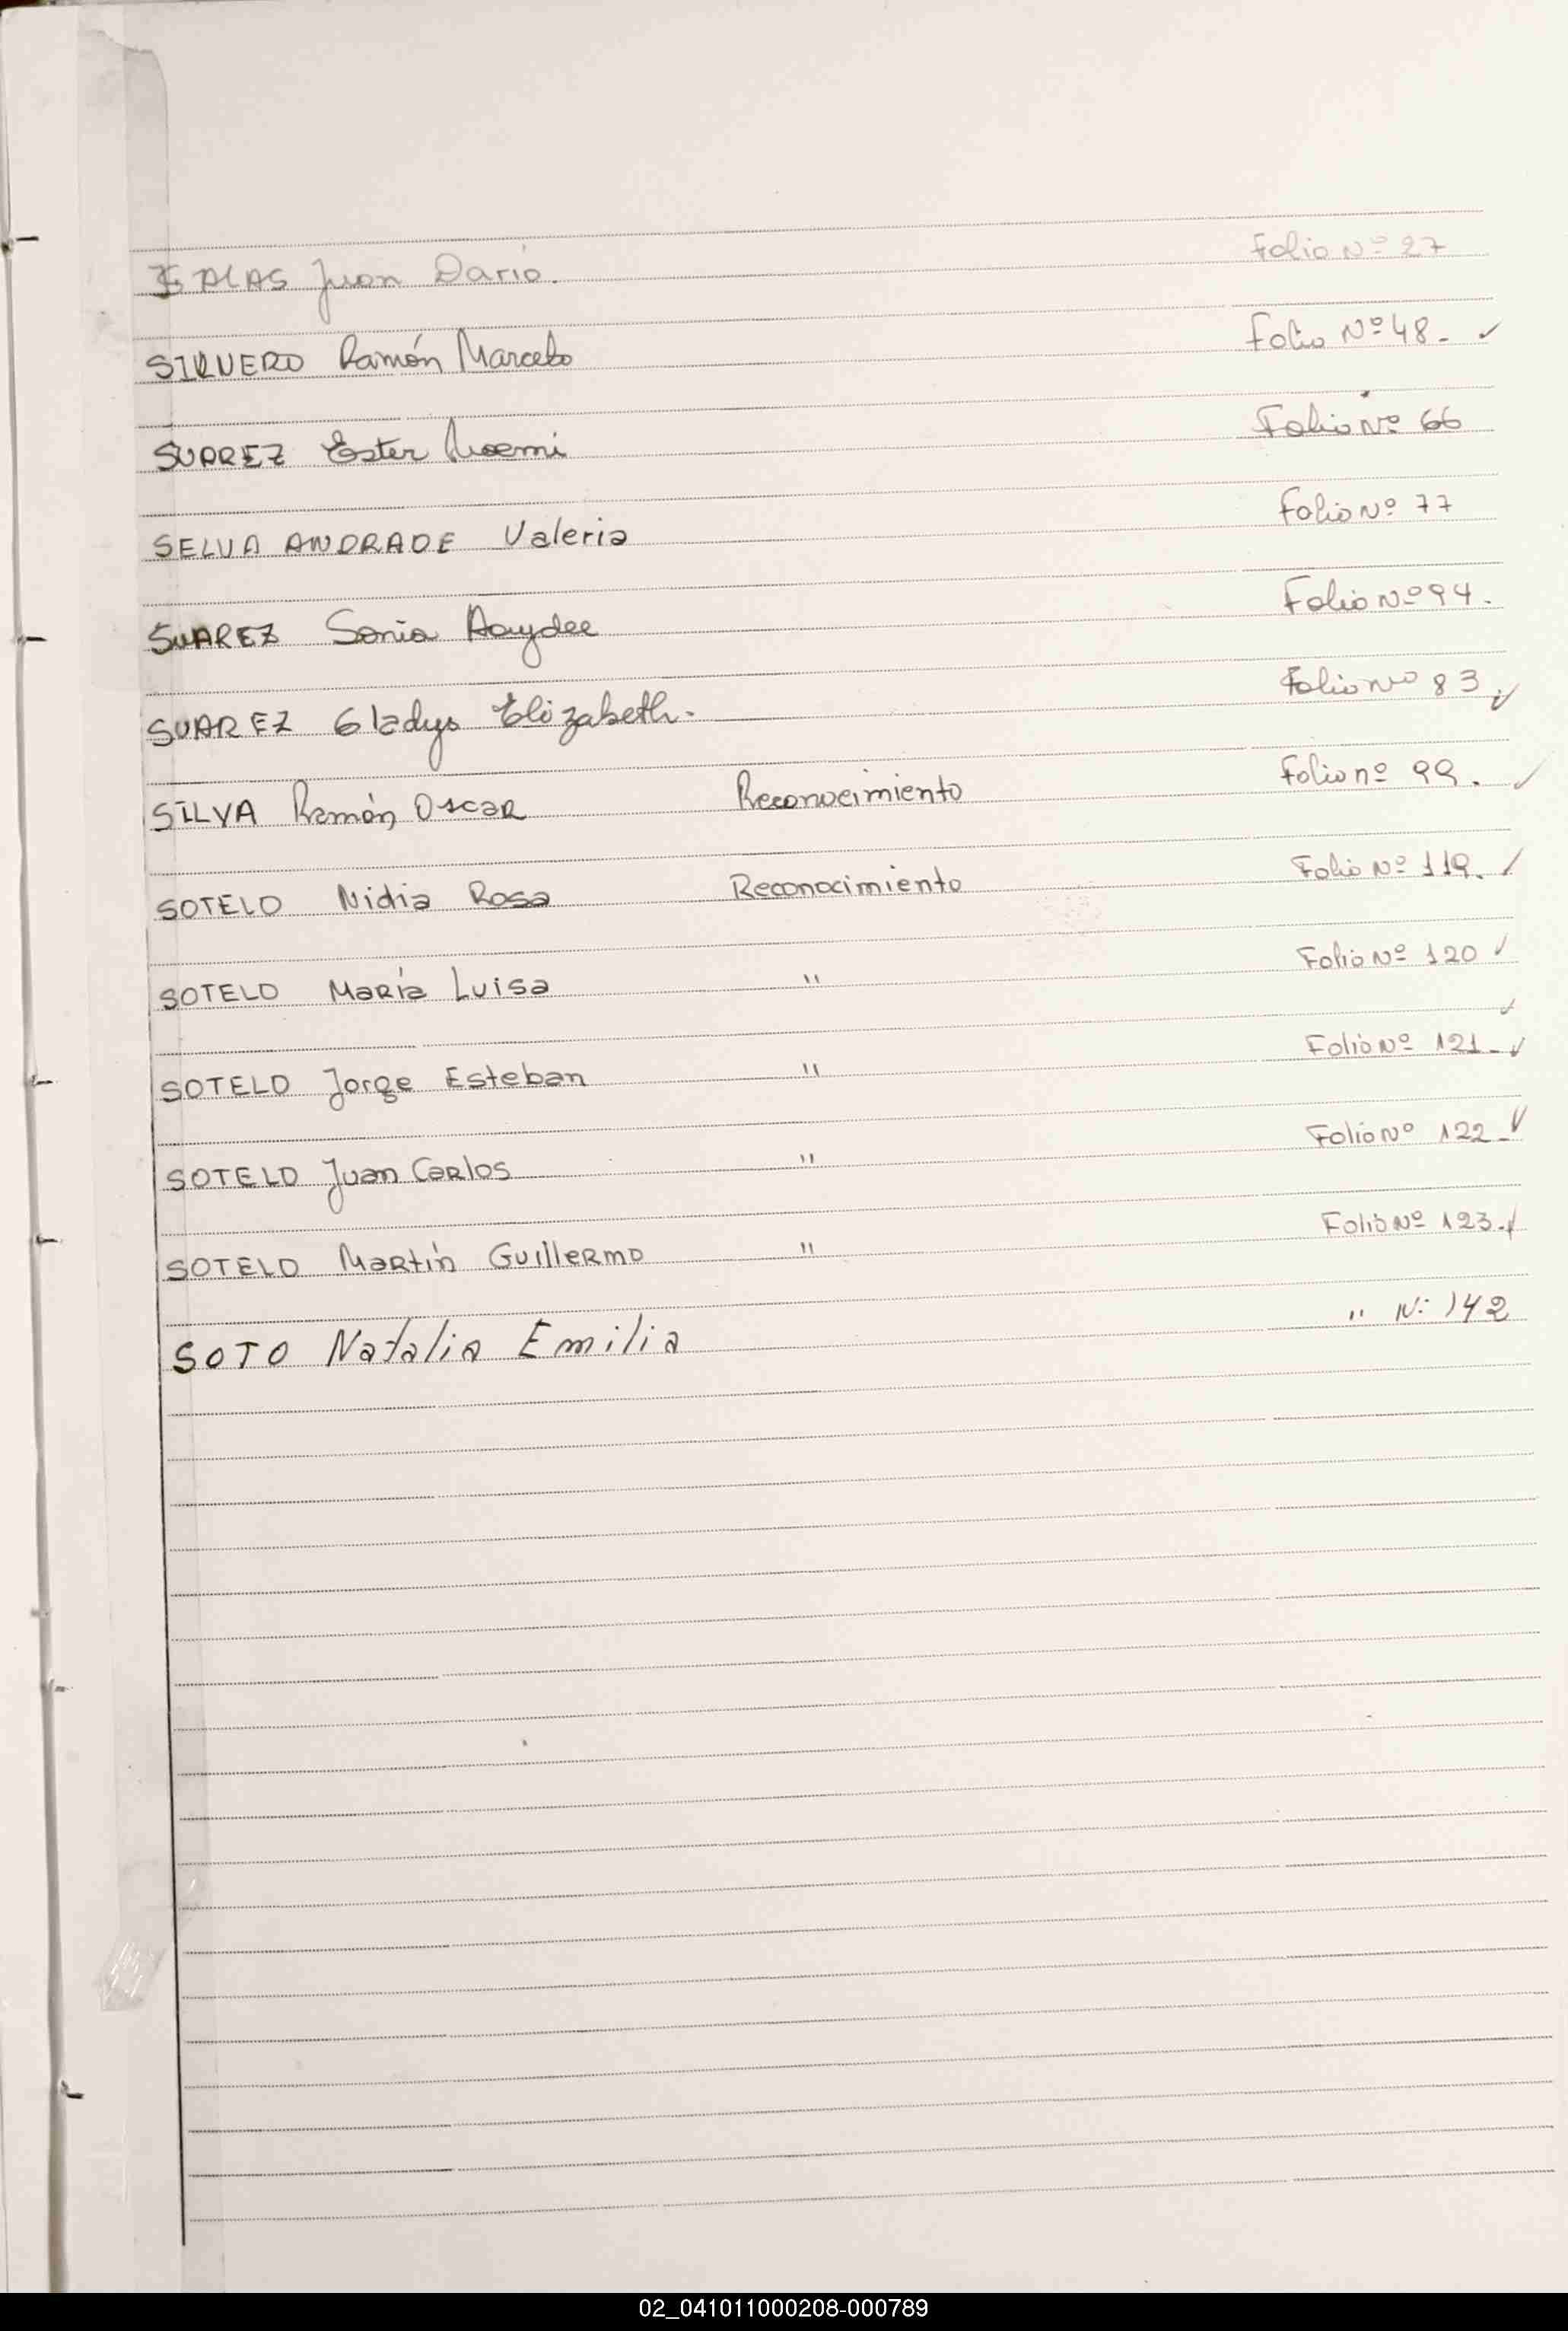 SALAS Juan Dario. Folio Nº 27
SIQUERO Ramón Marcelo Folio Nº 48- ✓
SUAREZ Ester Noemi Folio Nº 66
SELVA ANDRADE Valeria Folio Nº 77
SUAREZ Sonia Haydee Folio Nº 94.
SUAREZ Gladys Elizabeth.- Folio nº 83. ✓
SILVA Ramón Oscar Reconocimiento Folio nº 99. ✓
SOTELO Nidia Rosa Reconocimiento Folio Nº 119. ✓
SOTELO María Luisa " Folio Nº 120 ✓
SOTELO Jorge Esteban " Folio Nº 121- ✓
SOTELO Juan Carlos " Folio Nº 122- ✓
SOTELO Martín Guillermo " Folio Nº 123. ✓
SOTO Natalia Emilia " Nº 142
02_041011000208-000789